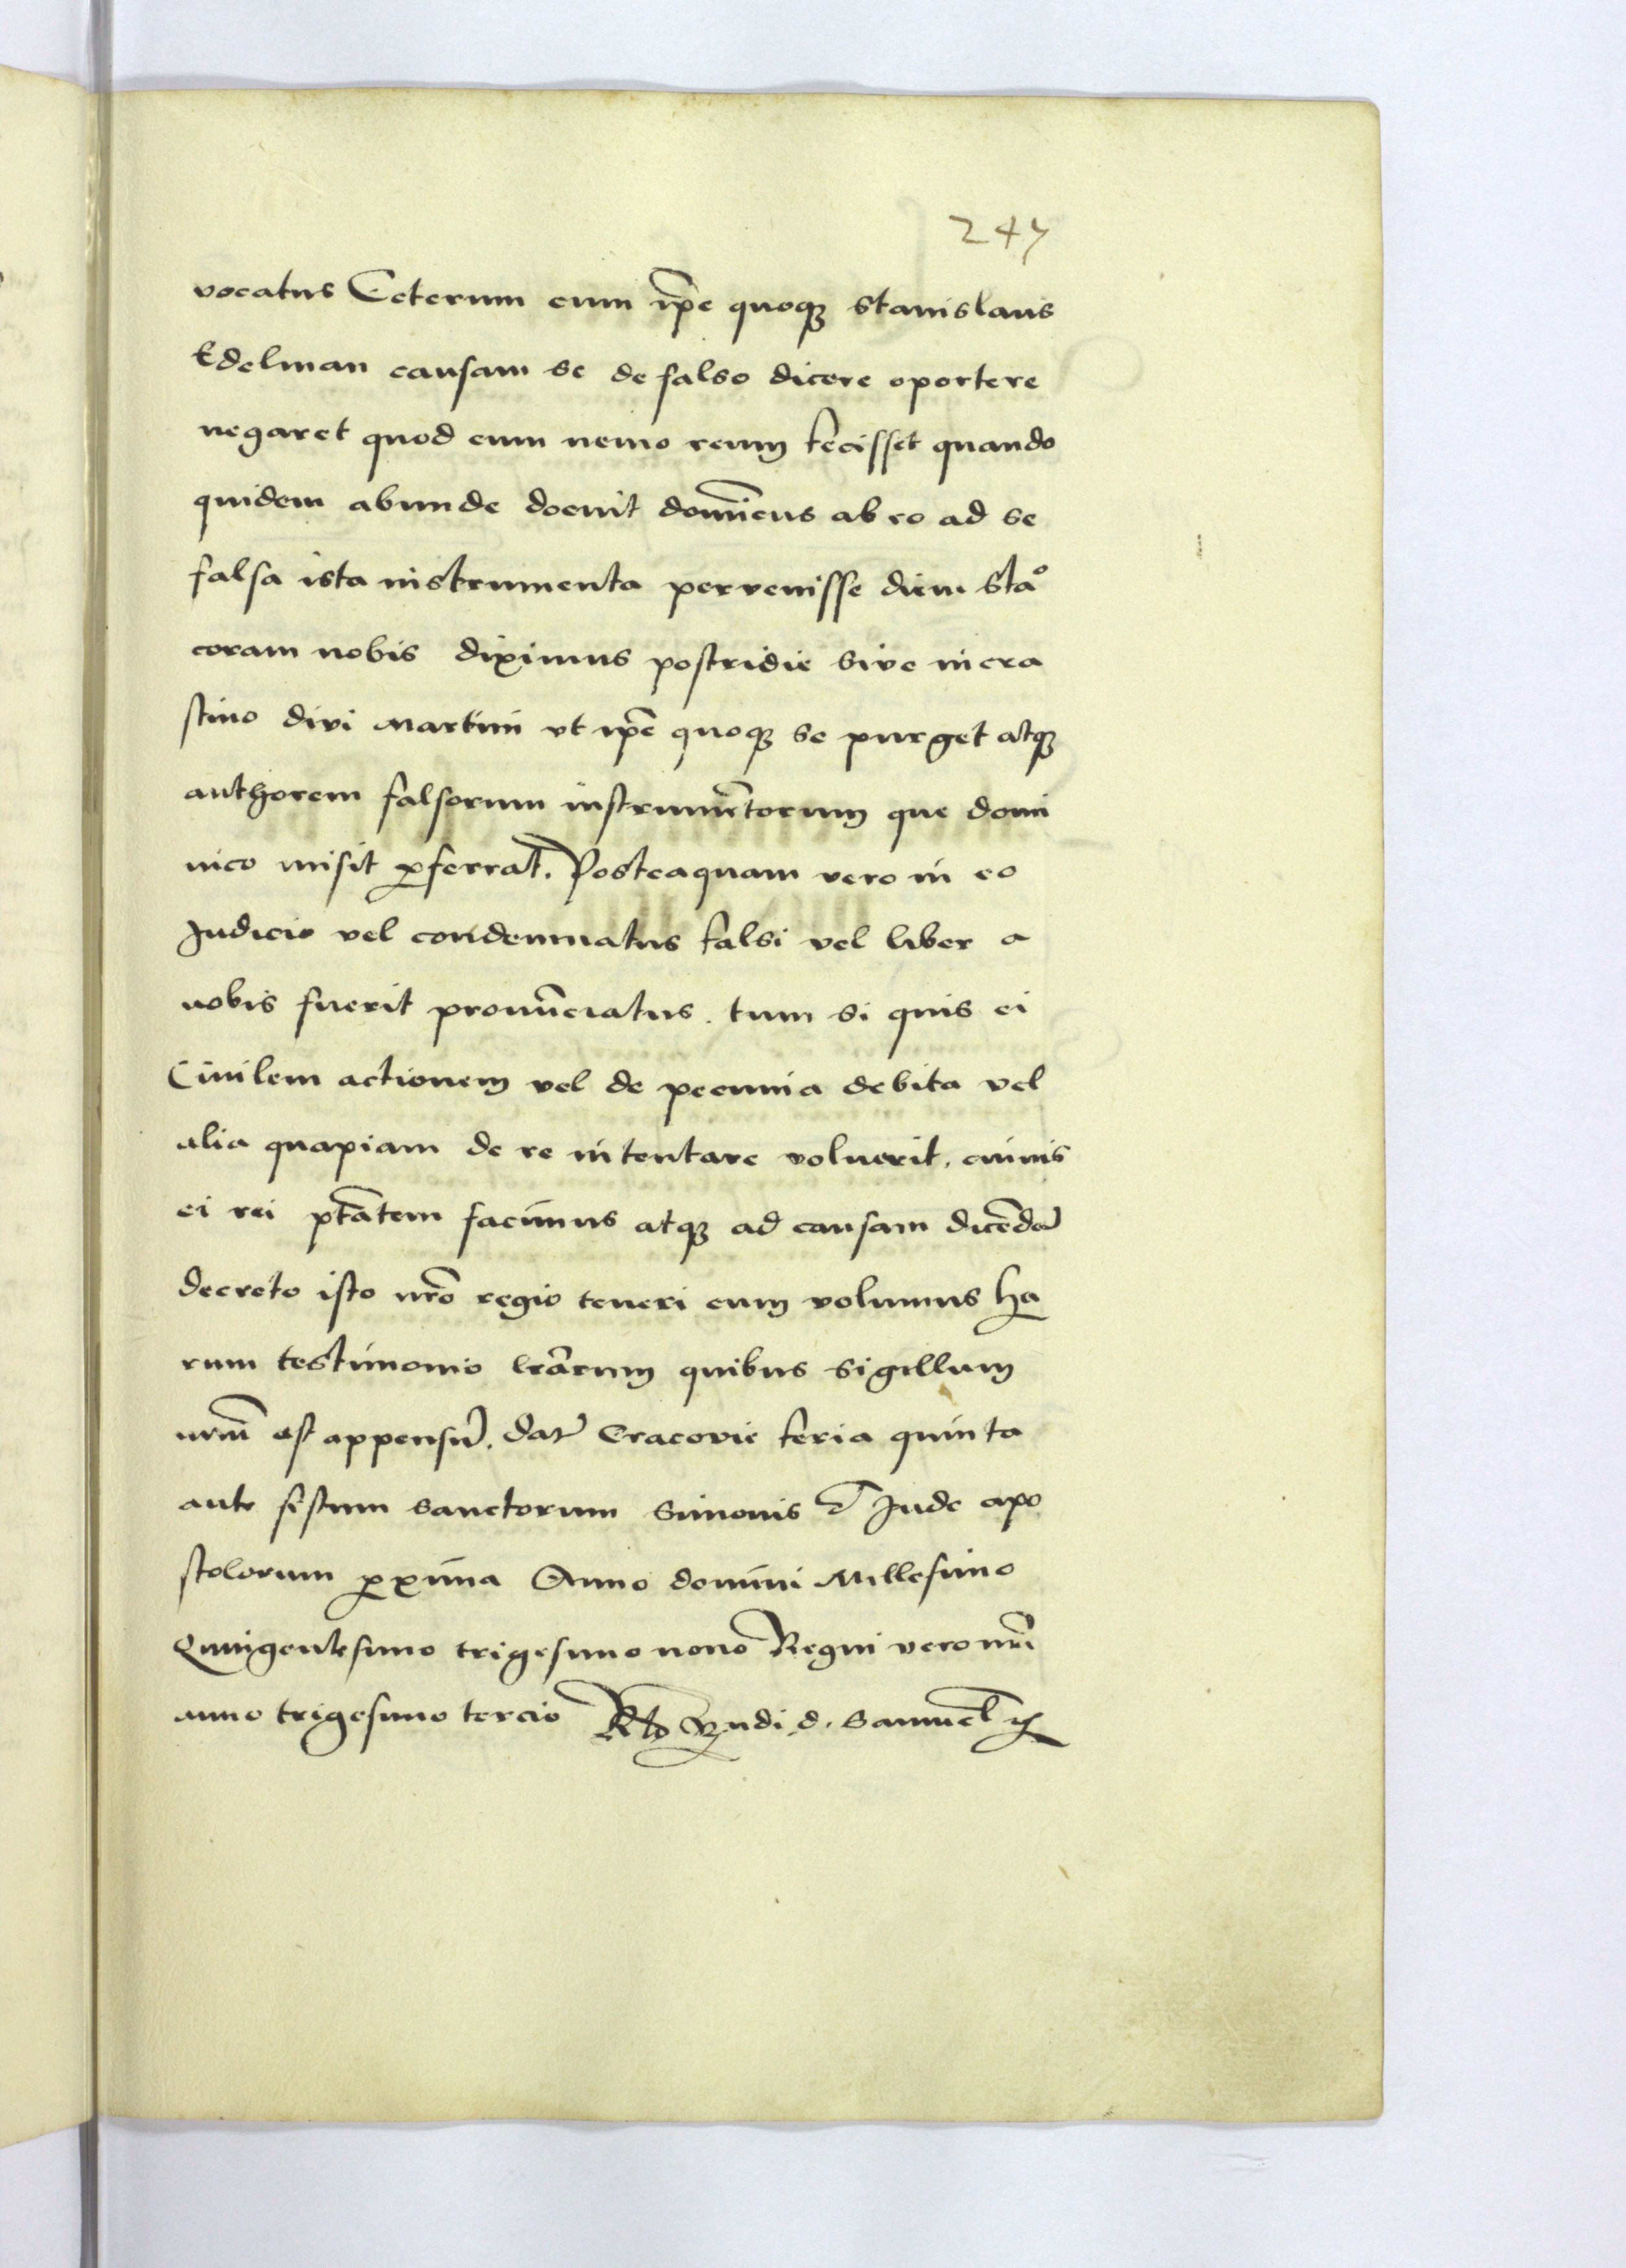 247
vocatus Ceterum cum ip̃e quoqꝫ Stanislaus
Edelman causam se de falso dicere oportere
negaret quod eum nemo reum fecisset quando
quidem abunde docuit dom̃icus ab eo ad se
falsa ista instrumenta pervenisse diem Stã°
coram nobis diximus postridie sive in cra
stino divi Martini vt ip̃e quoqꝫ se purget atqꝫ
authorem falsorum instrumẽtorum que domi
nico misit ꝑferrat. Posteaquam vero in eo
Judicio vel condemnatus falsi vel liber a
nobis fuerit pronũciatus. tum si quis ei
Ciuilem actionem vel de pecunia debita vel
alia quapiam de re intentare voluerit, cuiuis
ei rei ptãtem facimus atqꝫ ad causam dicẽdã
decreto isto nr̃o regio teneri eum volumus ha
rum testimonio lrãrum quibus sigillum
nrũ est appensũ. dat̃ Cracovie feria quinta
ante festum sanctorum Simonis et Jude apo
stolorum ꝓxima Anno domini Millesimo
Quingentesimo trigesimo nono Regni vero nr̃i
anno trigesimo tercio Rtõ Rndi d. Samuel